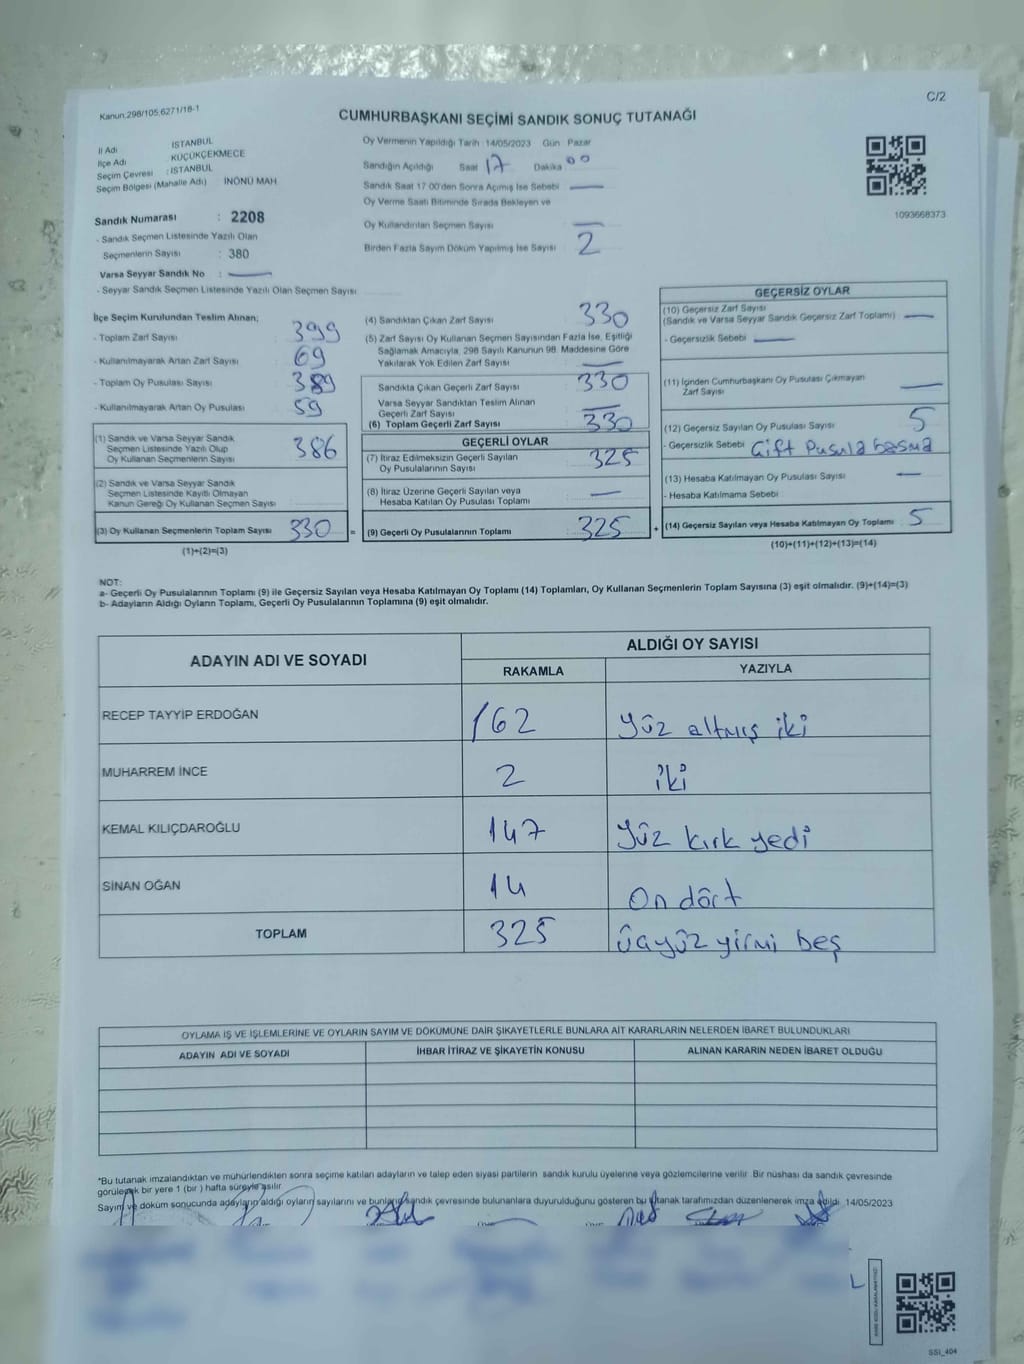 Kanun.298/105.6271/18-1
C/2
CUMHURBAŞKANI SEÇİMİ SANDIK SONUÇ TUTANAĞI
İl Adı İSTANBUL
İlçe Adı KÜÇÜKÇEKMECE
Seçim Çevresi : İSTANBUL
Seçim Bölgesi (Mahalle Adı) İNÖNÜ MAH
Sandık Numarası : 2208
- Sandık Seçmen Listesinde Yazılı Olan
Seçmenlerin Sayısı : 380
Varsa Seyyar Sandık No :
- Seyyar Sandık Seçmen Listesinde Yazılı Olan Seçmen Sayısı
Oy Vermenin Yapıldığı Tarih 14/05/2023 Gün Pazar
Sandığın Açıldığı Saat 17 Dakika 00
Sandık Saat 17 00'den Sonra Açımış İse Sebebi
Oy Verme Saati Bitiminde Sırada Bekleyen ve
Oy Kullandırılan Seçmen Sayısı
Birden Fazla Sayım Döküm Yapılmış İse Sayısı 2
1093668373
İlçe Seçim Kurulundan Teslim Alınan;
- Toplam Zarf Sayısı 399
- Kullanılmayarak Artan Zarf Sayısı 69
- Toplam Oy Pusulası Sayısı 389
- Kullanılmayarak Artan Oy Pusulası 59
(1) Sandık ve Varsa Seyyar Sandık
Seçmen Listesinde Yazılı Olup
Oy Kullanan Seçmenlerin Sayısı 386
(2) Sandık ve Varsa Seyyar Sandık
Seçmen Listesinde Kayıtlı Olmayan
Kanun Gereği Oy Kullanan Seçmen Sayısı
(3) Oy Kullanan Seçmenlerin Toplam Sayısı 330 =
(1)+(2)=(3)
(4) Sandıktan Çıkan Zarf Sayısı 330
(5) Zarf Sayısı Oy Kullanan Seçmen Sayısından Fazla İse, Eşitliği
Sağlamak Amacıyla, 298 Sayılı Kanunun 98. Maddesine Göre
Yakılarak Yok Edilen Zarf Sayısı
Sandıkta Çıkan Geçerli Zarf Sayısı 330
Varsa Seyyar Sandıktan Teslim Alınan
Geçerli Zarf Sayısı
(6) Toplam Geçerli Zarf Sayısı 330
GEÇERLİ OYLAR
(7) İtiraz Edilmeksizin Geçerli Sayılan
Oy Pusulalarının Sayısı 325
(8) İtiraz Üzerine Geçerli Sayılan veya
Hesaba Katılan Oy Pusulası Toplamı
(9) Geçerli Oy Pusulalarının Toplamı 325 +
GEÇERSİZ OYLAR
(10) Geçersiz Zarf Sayısı
(Sandık ve Varsa Seyyar Sandık Geçersiz Zarf Toplamı)
- Geçersizlik Sebebi
(11) İçinden Cumhurbaşkanı Oy Pusulası Çıkmayan
Zarf Sayısı
(12) Geçersiz Sayılan Oy Pusulası Sayısı 5
- Geçersizlik Sebebi Çift Pusula basma
(13) Hesaba Katılmayan Oy Pusulası Sayısı
- Hesaba Katılmama Sebebi
(14) Geçersiz Sayılan veya Hesaba Katılmayan Oy Toplamı 5
(10)+(11)+(12)+(13)=(14)
NOT:
a- Geçerli Oy Pusulalarının Toplamı (9) ile Geçersiz Sayılan veya Hesaba Katılmayan Oy Toplamı (14) Toplamları, Oy Kullanan Seçmenlerin Toplam Sayısına (3) eşit olmalıdır. (9)+(14)=(3)
b- Adayların Aldığı Oyların Toplamı, Geçerli Oy Pusulalarının Toplamına (9) eşit olmalıdır.
ADAYIN ADI VE SOYADI ALDIĞI OY SAYISI
RAKAMLA YAZIYLA
RECEP TAYYİP ERDOĞAN 162 Yüz altmış iki
MUHARREM İNCE 2 iki
KEMAL KILIÇDAROĞLU 147 Yüz kırk yedi
SİNAN OĞAN 14 On dört
TOPLAM 325 üçyüz yirmi beş
OYLAMA İŞ VE İŞLEMLERİNE VE OYLARIN SAYIM VE DÖKÜMÜNE DAİR ŞİKAYETLERLE BUNLARA AİT KARARLARIN NELERDEN İBARET BULUNDUKLARI
ADAYIN ADI VE SOYADI İHBAR İTİRAZ VE ŞİKAYETİN KONUSU ALINAN KARARIN NEDEN İBARET OLDUĞU
*Bu tutanak imzalandıktan ve mühürlendikten sonra seçime katılan adayların ve talep eden siyasi partilerin sandık kurulu üyelerine veya gözlemcilerine verilir. Bir nüshası da sandık çevresinde
görülecek bir yere 1 (bir) hafta süreyle asılır
Sayım ve döküm sonucunda adayların aldığı oyların sayılarını ve bunların sandık çevresinde bulunanlara duyurulduğunu gösteren bu tutanak tarafımızdan düzenlenerek imza edildi. 14/05/2023
SSİ_404